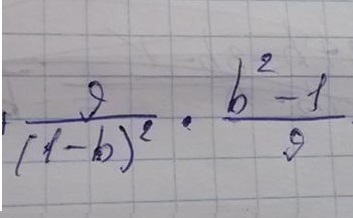 9/(1-b)² · (b²-1)/9